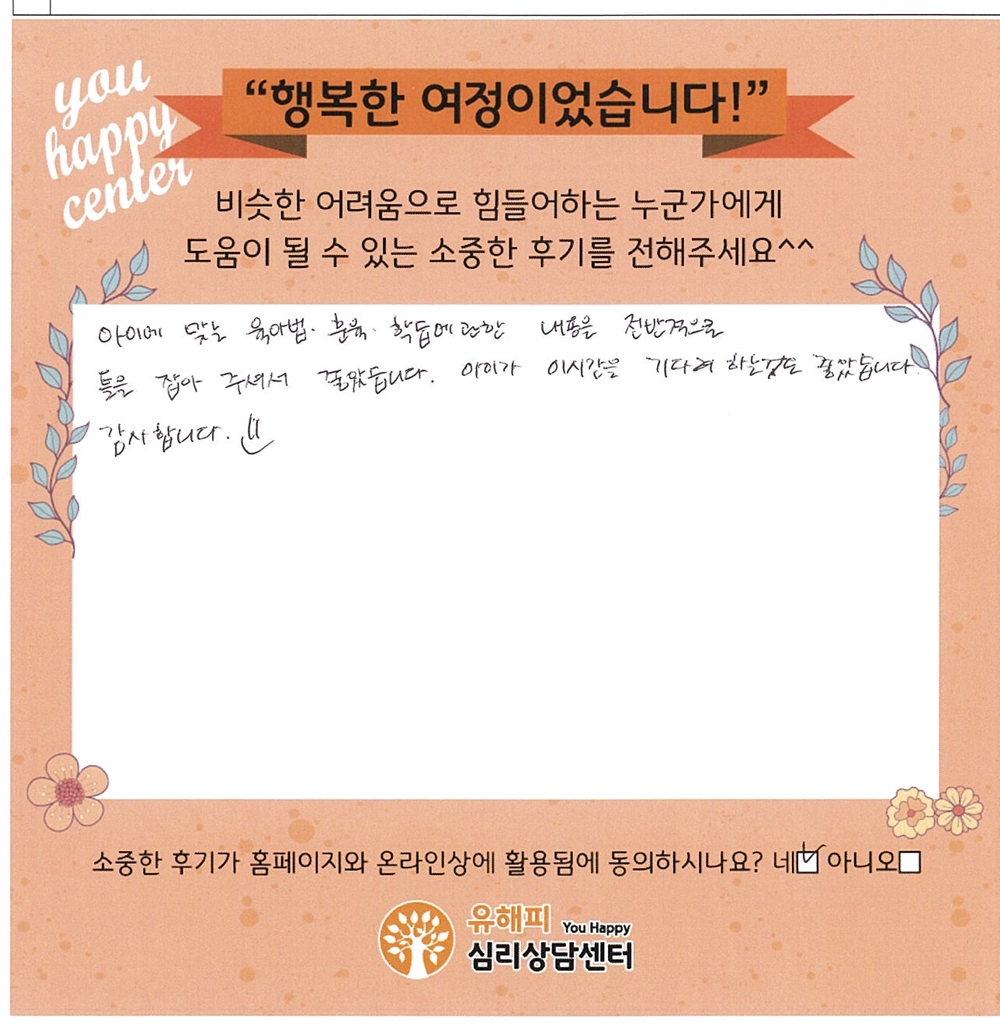 you
happy
center
“행복한 여정이었습니다!”
비슷한 어려움으로 힘들어하는 누군가에게
도움이 될 수 있는 소중한 후기를 전해주세요^^
아이에 맞는 육아법. 훈육. 학습에 관한 내용을 전반적으로
틀을 잡아 주셔서 좋았습니다. 아이가 이시간을 기다려 하는것도 좋았습니다.
감사합니다.
소중한 후기가 홈페이지와 온라인상에 활용됨에 동의하시나요? 네☑ 아니오☐
유해피 You Happy
심리상담센터